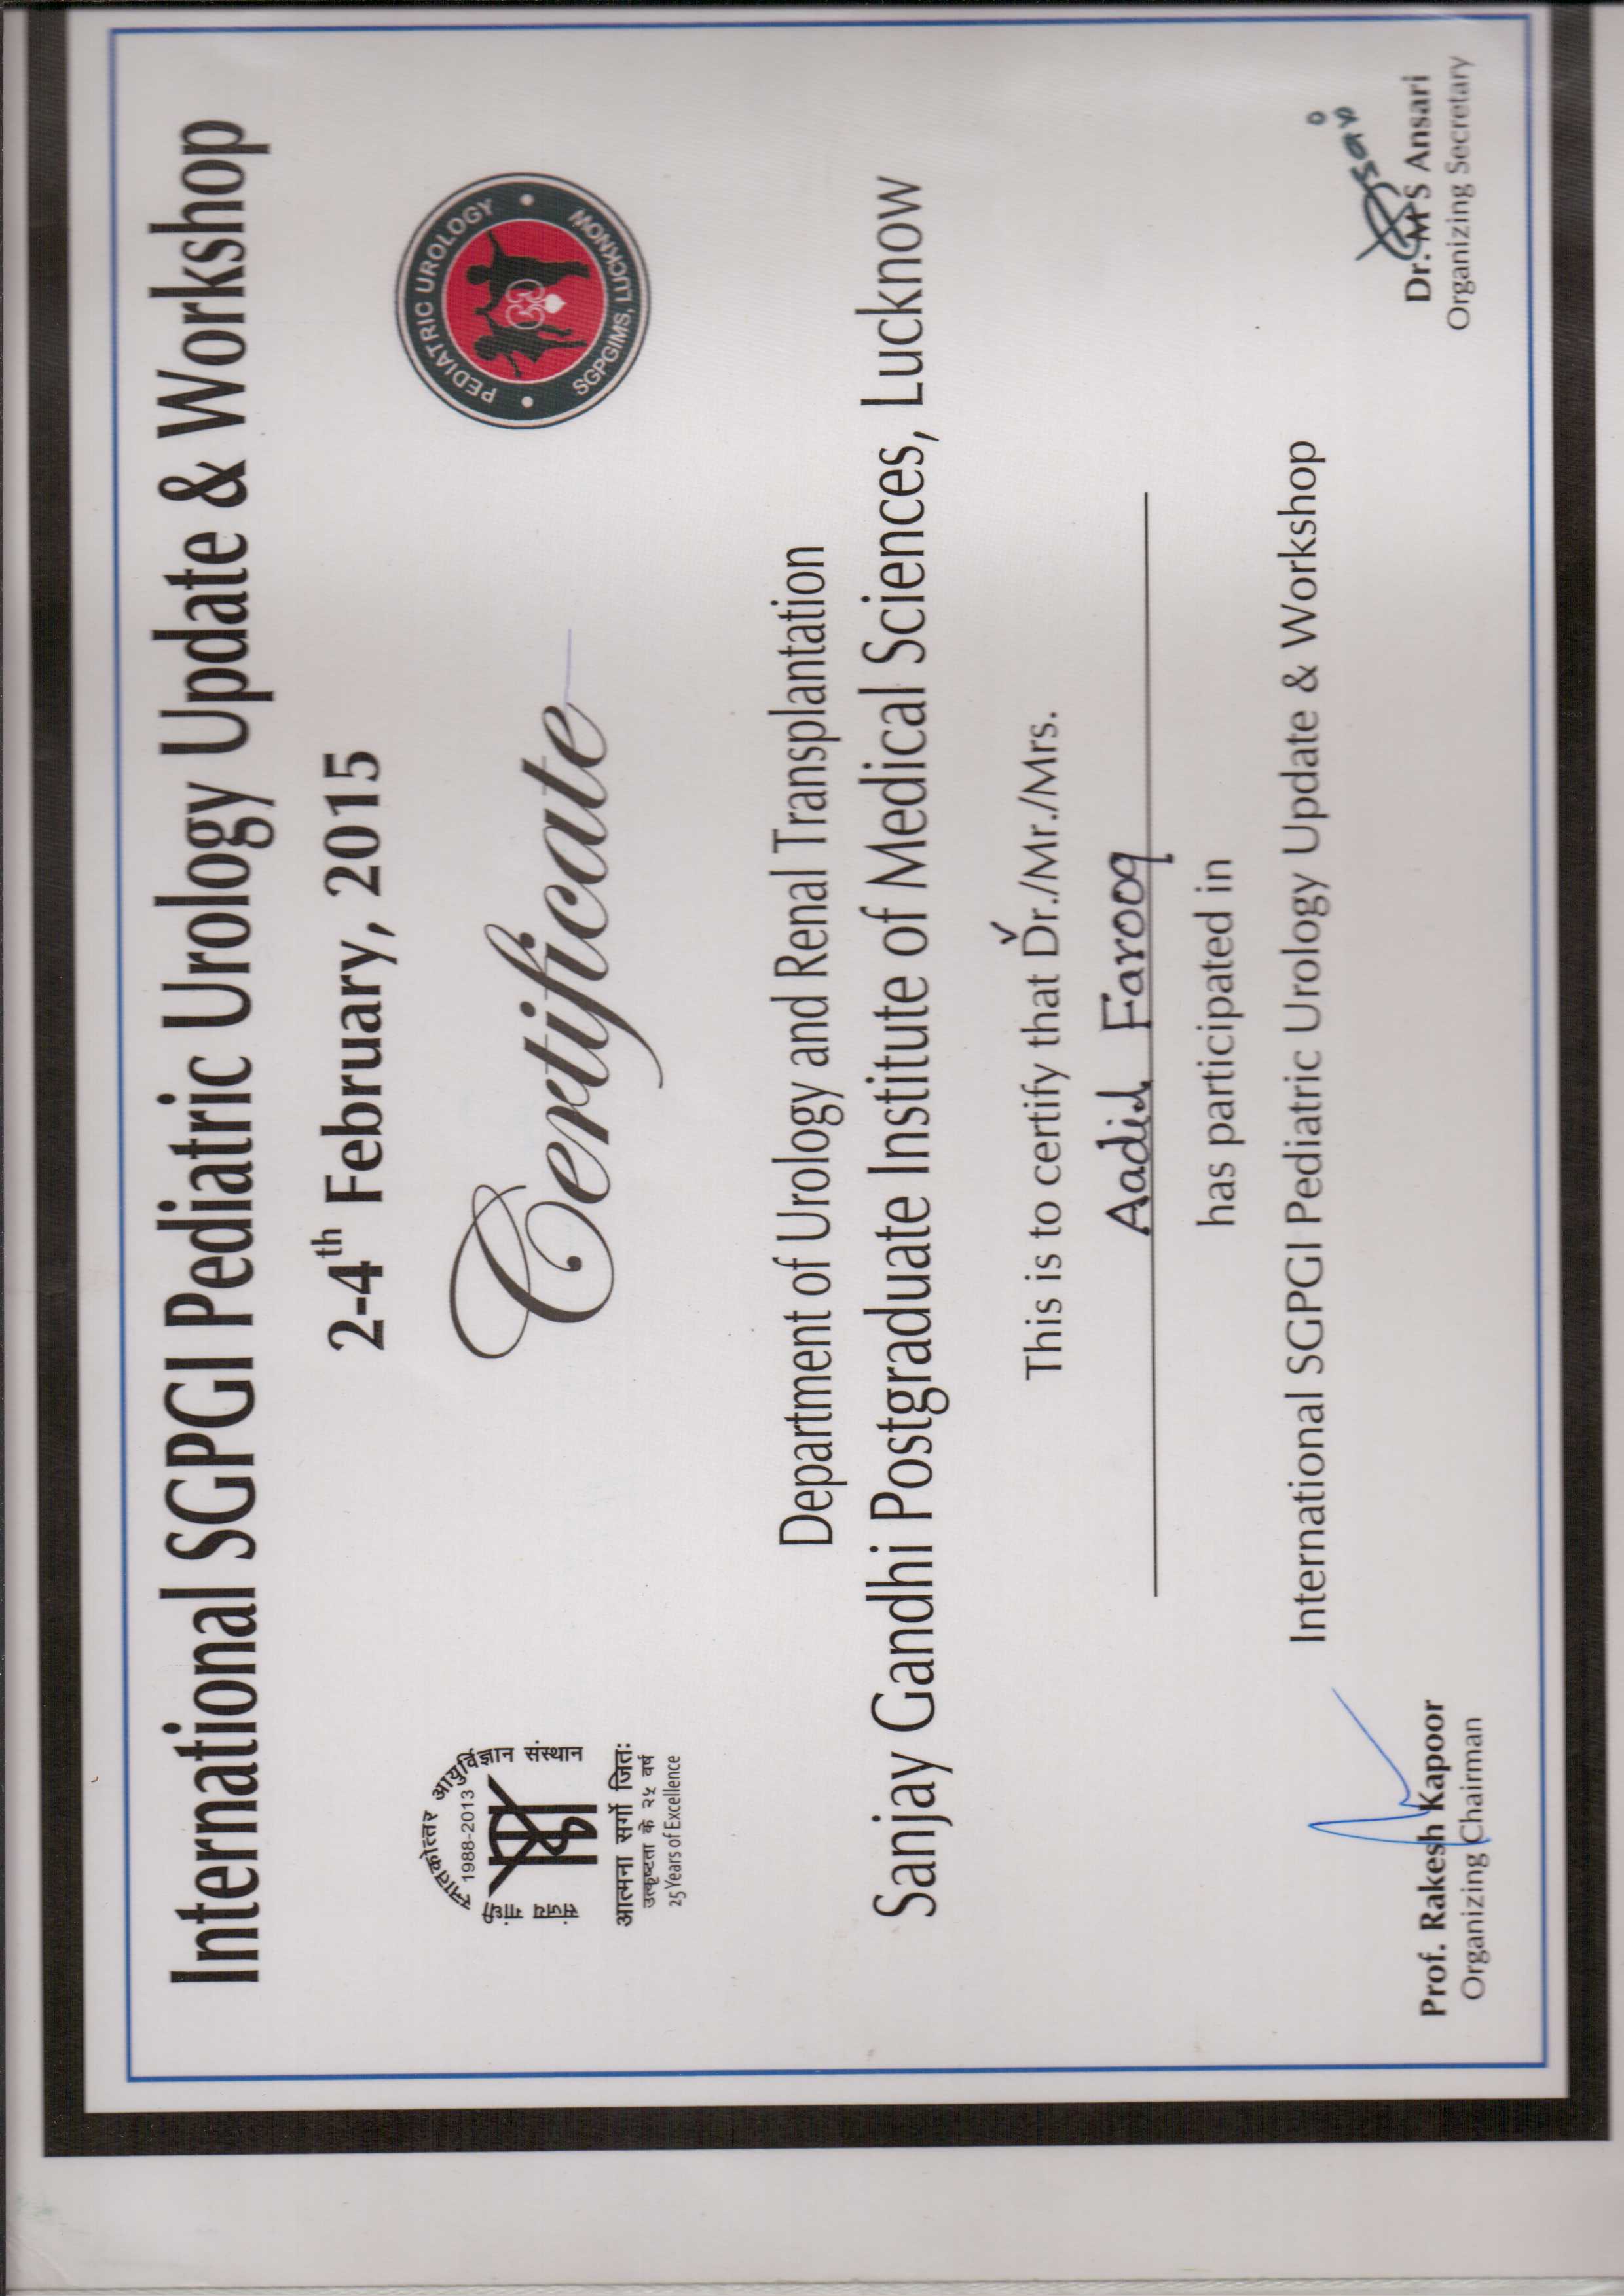 International SGPGI Pediatric Urology Update & Workshop
2-4th February, 2015
स्नातकोत्तर आयुर्विज्ञान संस्थान
1988-2013
संजय गांधी
आत्मना सर्गो जितः
उत्कृष्टता के २५ वर्ष
25 Years of Excellence
Certificate
PEDIATRIC UROLOGY
SGPGIMS, LUCKNOW
Department of Urology and Renal Transplantation
Sanjay Gandhi Postgraduate Institute of Medical Sciences, Lucknow
This is to certify that Dr./Mr./Mrs.
Aadil Farooq
has participated in
International SGPGI Pediatric Urology Update & Workshop
Prof. Rakesh Kapoor
Organizing Chairman
Dr. M S Ansari
Organizing Secretary